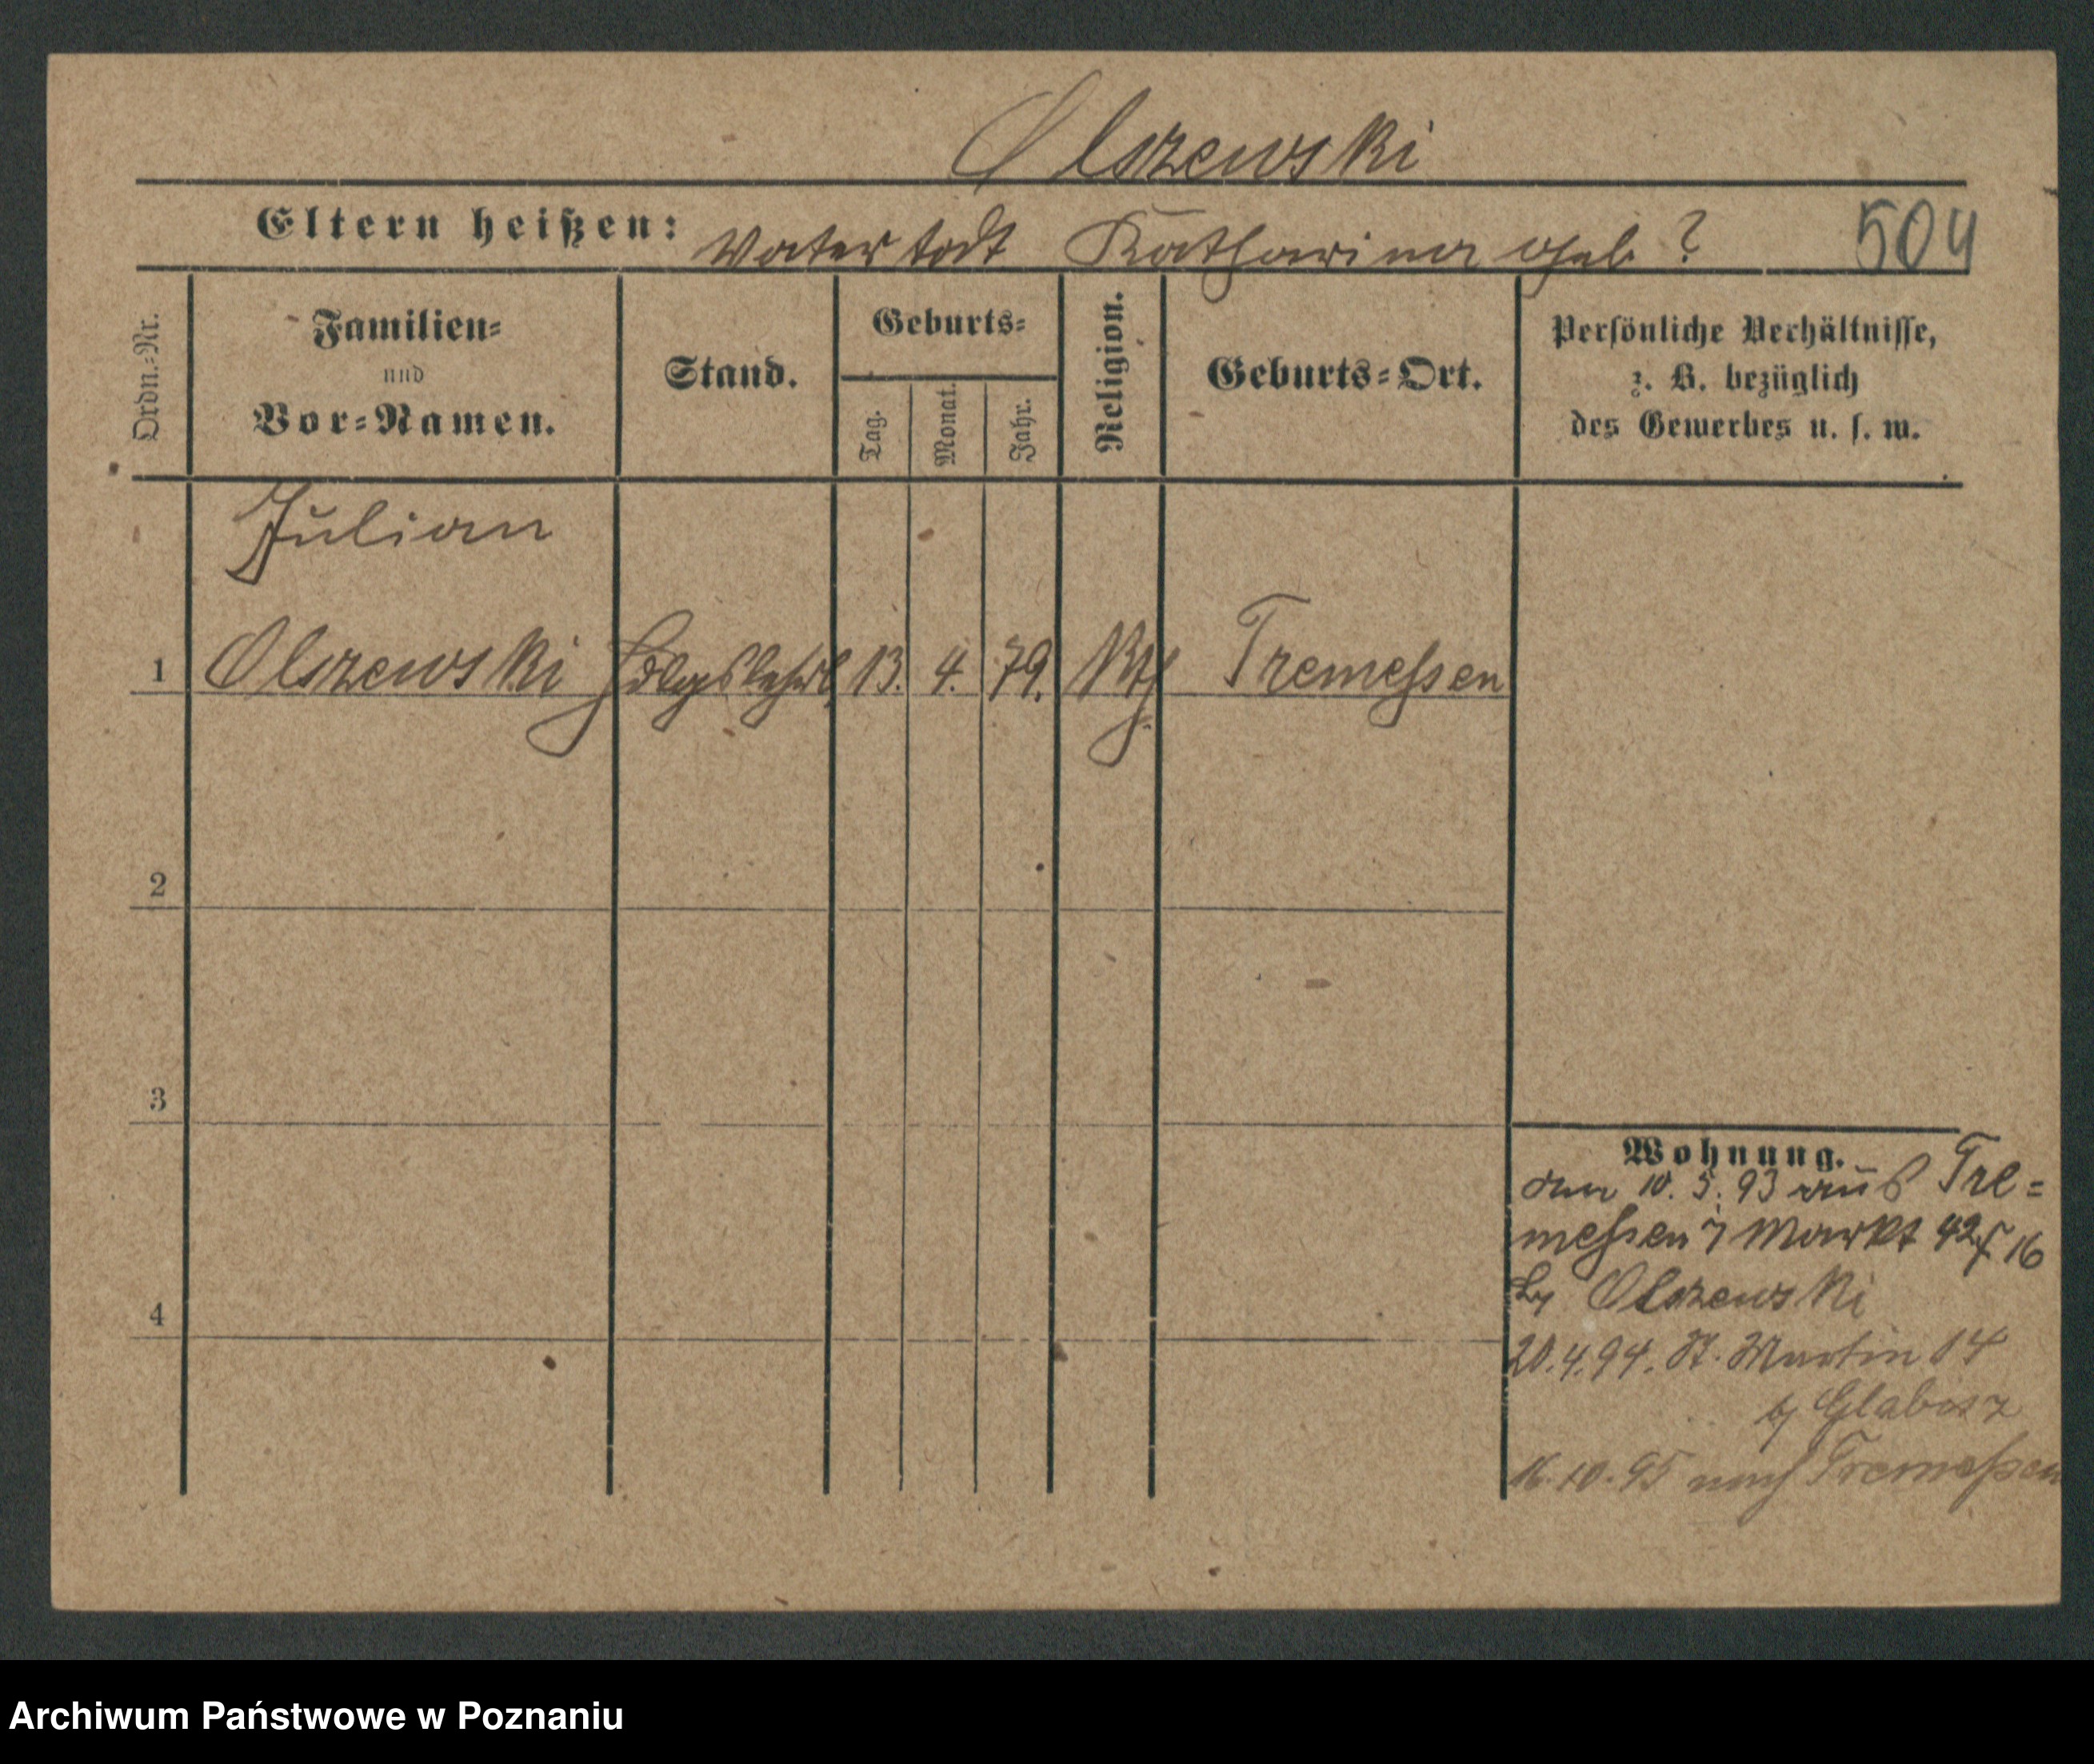 Olszewski
Eltern heißen: Vater todt Katharina geb. ? 504
Ordn.-Nr.
Familien-
und
Vor-Namen.
Stand.
Geburts-
Tag.
Monat.
Jahr.
Religion.
Geburts-Ort.
Persönliche Verhältnisse,
z. B. bezüglich
des Gewerbes u. s. w.
Julian
1 Olszewski Hdlgslehrl 13. 4. 79. Kth Tremeßen
2
3
4
Wohnung.
den 10. 5. 93 aus Tre=
meßen Markt 42 16
by Olszewski
20.4.94. St. Martin 14
by Glabisz
16.10.95 nach Tremeßen
Archiwum Państwowe w Poznaniu